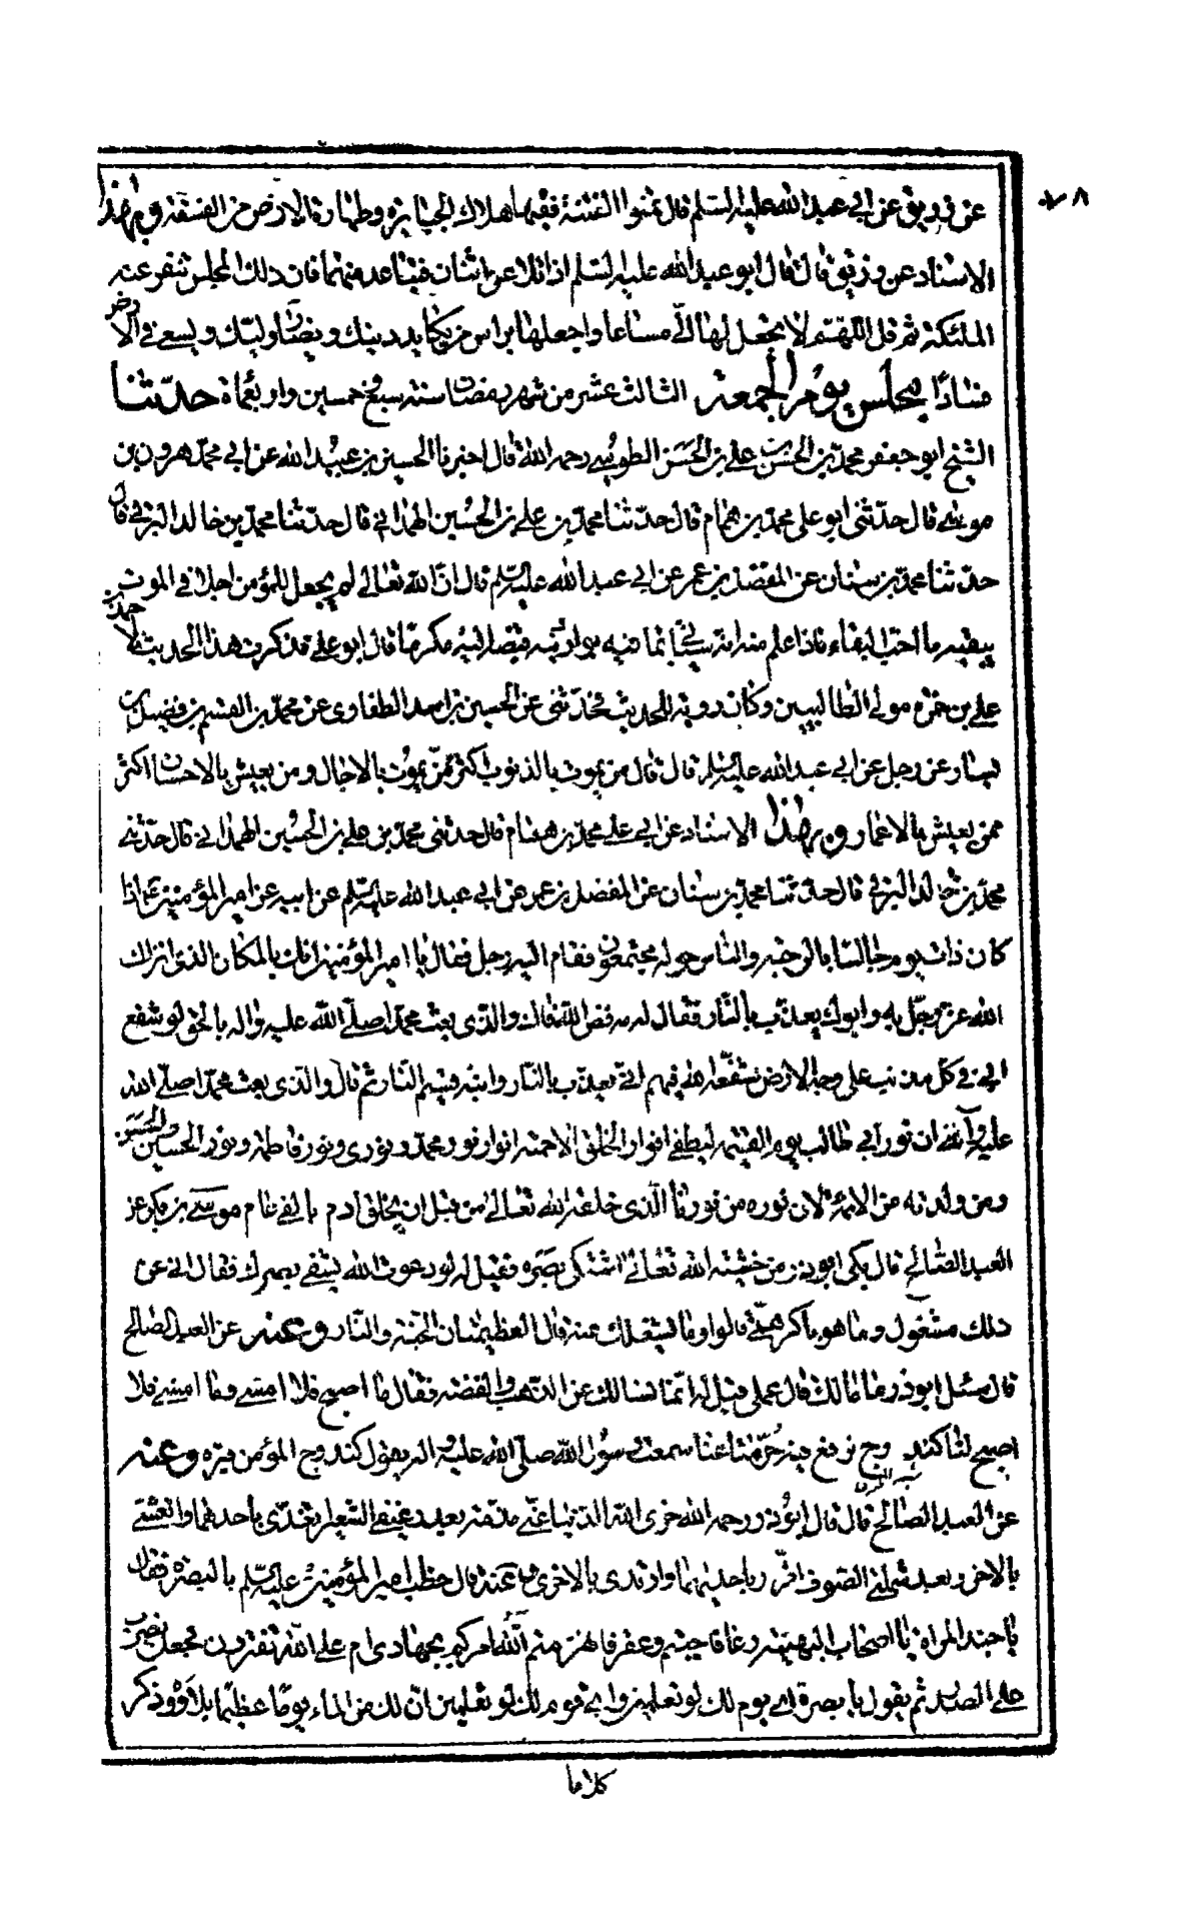 ٧٠٨
عن رزيق عن ابي عبد الله عليه السلم قال تمنوا الفتنة ففيها هلاك الجبابرة وطهارة الارض من الفسقة وبهذا
الاسناد عن رزيق قال قال ابو عبد الله عليه السلم اذا تلاعن اثنان فتباعد منهما فان ذلك المجلس تنفر عنه
الملئكة ثم قل اللهم لا تجعل لها الي مساغا واجعلها براس من يكايد دينك ويضاد وليك ويسعى في الارض
فسادا مجلس يوم الجمعة الثالث عشر من شهر رمضان سنة سبع وخمسين واربعمائة حدثنا
الشيخ ابو جعفر محمد بن الحسن بن علي بن الحسن الطوسي رحمه الله قال اخبرنا الحسين بن عبيد الله عن ابي محمد هرون بن
موسى قال حدثني ابو علي محمد بن همام قال حدثنا محمد بن علي بن الحسين الهمداني قال حدثنا محمد بن خالد البرقي قال
حدثنا محمد بن سنان عن المفضل بن عمر عن ابي عبد الله عليه السلم قال ان الله تعالى لم يجعل للمؤمن اجلا في الموت
يبقيه ما احب البقاء فاذا علم منه انه سيأتي بما فيه بوار دينه قبضه اليه مكرما قال ابو علي فذكرت هذا الحديث لاحمد بن
علي بن حمزة مولى الطالبيين وكان روية للحديث فحدثني عن الحسين بن اسد الطفاوي عن محمد بن القسم بن فضيل بن
يسار عن رجل عن ابي عبد الله عليه السلم قال قال من يموت بالذنوب اكثر ممن يموت بالاجال ومن يعيش بالاحسان اكثر
ممن يعيش بالاعمار وبهذا الاسناد عن ابي علي محمد بن همام قال حدثني محمد بن علي بن الحسين الهمداني قال حدثني
محمد بن خالد البرقي قال حدثنا محمد بن سنان عن المفضل بن عمر عن ابي عبد الله عليه السلم عن ابيه عن امير المؤمنين
كان ذات يوم جالسا بالرحبة والناس حوله مجتمعون فقام اليه رجل فقال يا امير المؤمنين انك بالمكان الذي انزلك
الله عز وجل به وابوك يعذب بالنار فقال له مه فض الله فاك والذي بعث محمدا صلى الله عليه واله بالحق لو شفع
ابي في كل مذنب على وجه الارض لشفعه الله فيهم ابي يعذب بالنار وابنه قسيم النار ثم قال والذي بعث محمدا صلى الله
عليه واله ان نور ابي طالب يوم القيمة ليطفي انوار الخلق الا خمسة انوار نور محمد ونوري ونور فاطمة ونور الحسن والحسين
ومن ولدته من الائمة لان نوره من نورنا الذي خلقه الله تعالى من قبل ان يخلق ادم بالفي عام موسى بن بكر عن
العبد الصالح قال بكى ابو ذر من خشية الله تعالى حتى اشتكى بصره فقيل له لو دعوت الله يشفي بصرك فقال اني عن
ذلك مشغول وما هو باكبر همي قالوا وما يشغلك عنه قال العظيمتان الجنة والنار وعنه عن العبد الصالح
قال سئل ابو ذر ما مالك قال عملي قيل له انما نسالك عن الذهب والفضة فقال ما اصبح فلا امسي وما امسي فلا
اصبح لنا كندوج نرفع فيه حر متاعنا سمعت رسول الله صلى الله عليه واله يقول كندوج المؤمن قبره وعنه
عن العبد الصالح قال قال ابو ذر رحمه الله جزى الله الدنيا عني مذمة بعد رغيفي الشعير اتغدى باحدهما واتعشى
بالاخر وبعد شملتي الصوف اتزر باحديهما وارتدى بالاخرى وعنه قال خطب امير المؤمنين عليه السلم بالبصرة فقال
يا جند المراة يا اصحاب البهيمة رغا فاجبتم وعقر فانهزمتم آلله امركم بجهادي ام على الله تفترون
ثم يقول يا بصرة اي يوم لك لو تعلمين واي قوم لك لو تعلمين ان لك من الماء يوما عظيما بلاؤه وذكر
كلاما